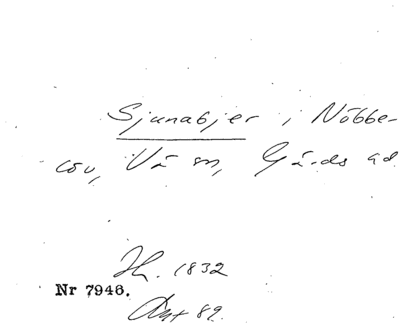 Sjunabjer i Nöbbe-
löv, Vä sn, Gärds hd.
Hl. 1832
Nr 7946.
Akt 89.